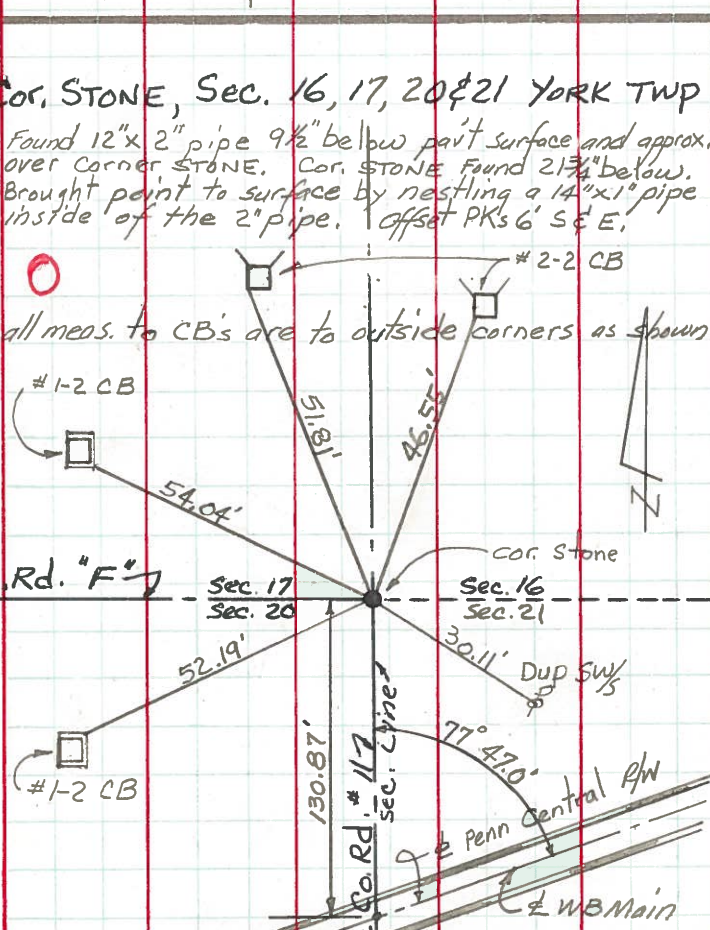 Cor. STONE, Sec. 16, 17, 20 & 21 YORK TWP
Found 12"x 2" pipe 9½" below pav't surface and approx.
over Corner STONE. Cor. STONE Found 21¾" below.
Brought point to surface by nestling a 14"x1" pipe
inside of the 2" pipe. Offset PKs 6' S & E.
#2-2 CB
all meas. to CB's are to outside corners as shown
#1-2 CB
51.81'
46.55'
54.04'
N
cor. Stone
Rd. "F"
Sec. 17
Sec. 16
Sec. 20
Sec. 21
52.19'
30.11'
Dup SW/S
130.87'
Co. Rd. #117
Sec. Line
77° 47.0'
#1-2 CB
℄ Penn Central R/W
℄ WB Main